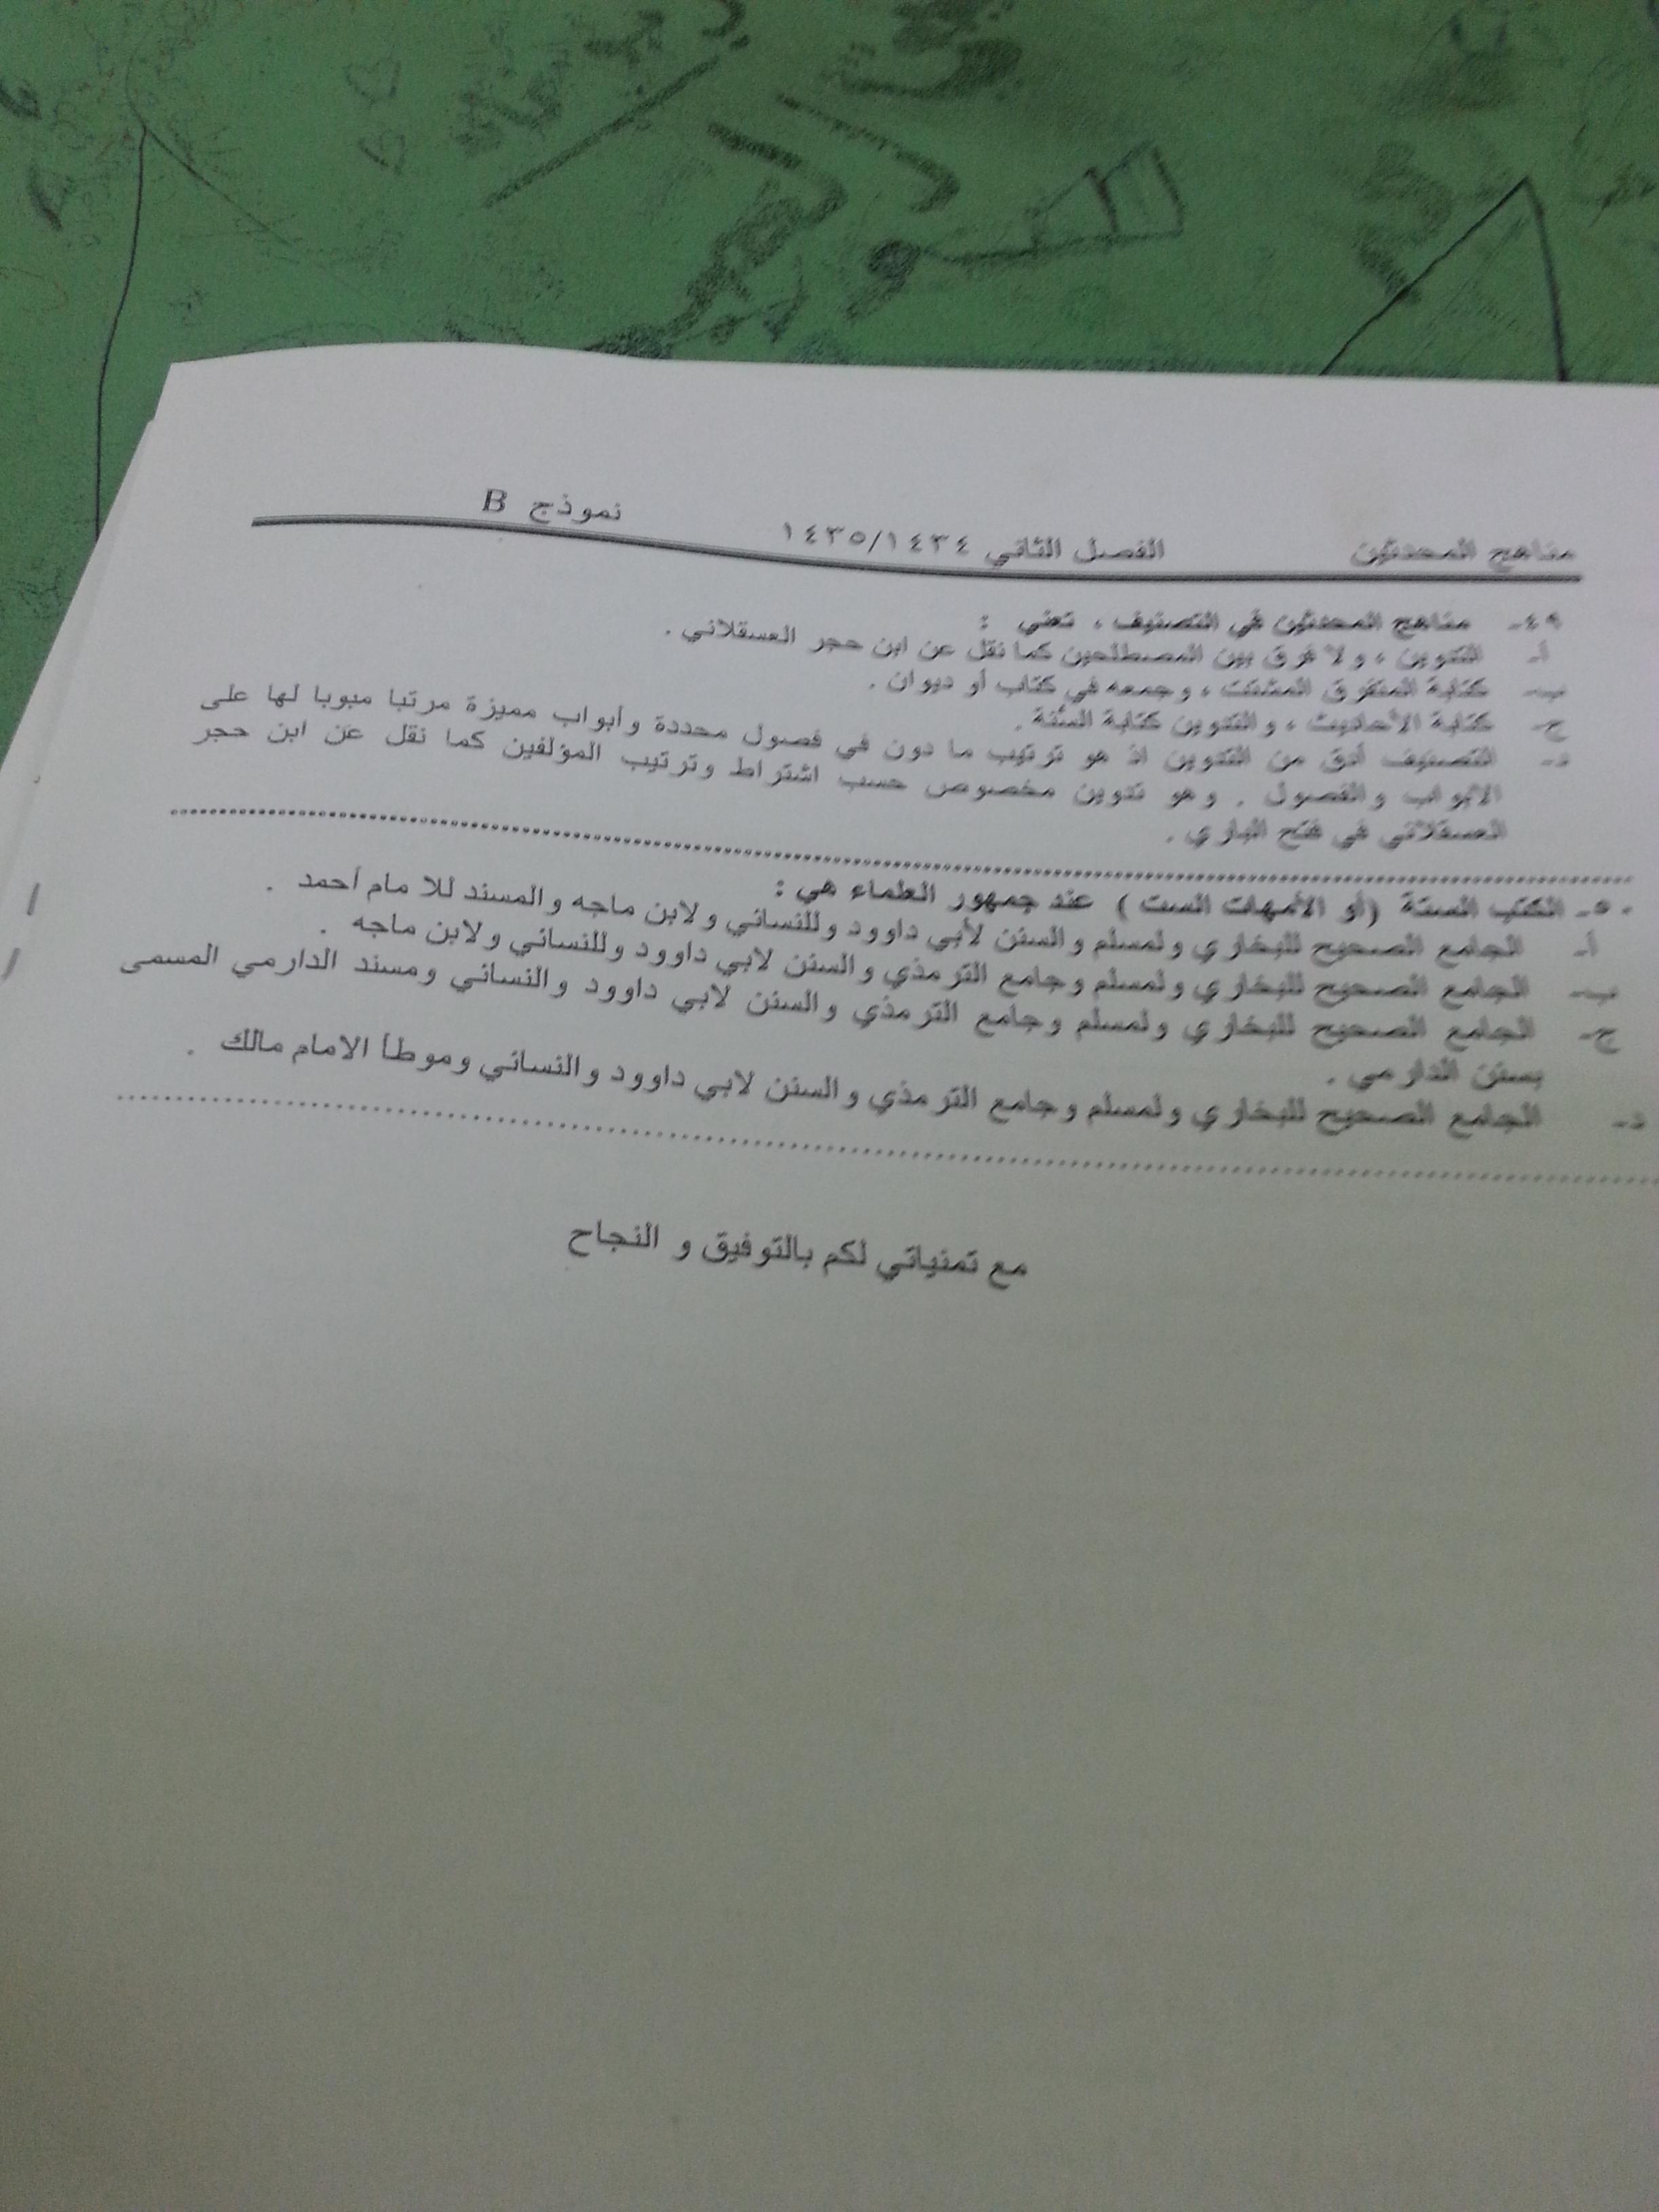 مناهج المحدثين الفصل الثاني ١٤٣٥/١٤٣٤ نموذج B
٤٩- مناهج المحدثين في التصنيف ، تعني :
أ- التدوين ، ولا فرق بين المصطلحين كما نقل عن ابن حجر العسقلاني .
ب- كتابة المتفرق المشتت ، وجمعه في كتاب أو ديوان .
ج- كتابة الأحاديث ، والتدوين كتابة السنة .
د- التصنيف أدق من التدوين اذ هو ترتيب ما دون في فصول محددة وأبواب مميزة مرتبا مبوبا لها على
الابواب والفصول . وهو تدوين مخصوص حسب اشتراط وترتيب المؤلفين كما نقل عن ابن حجر
العسقلاني في فتح الباري .
٥٠- الكتب الستة (أو الأمهات الست ) عند جمهور العلماء هي :
أ- الجامع الصحيح للبخاري ولمسلم والسنن لأبي داوود وللنسائي ولابن ماجه والمسند للا مام أحمد .
ب- الجامع الصحيح للبخاري ولمسلم وجامع الترمذي والسنن لابي داوود وللنسائي ولابن ماجه .
ج- الجامع الصحيح للبخاري ولمسلم وجامع الترمذي والسنن لابي داوود والنسائي ومسند الدارمي المسمى
بسنن الدارمي .
د- الجامع الصحيح للبخاري ولمسلم وجامع الترمذي والسنن لابي داوود والنسائي وموطأ الامام مالك .
مع تمنياتي لكم بالتوفيق و النجاح